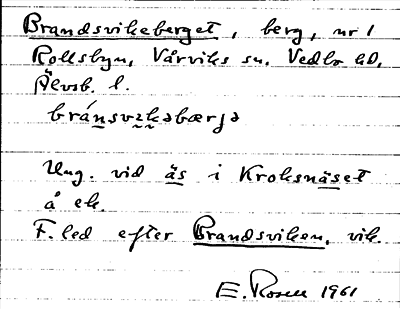 Brandsvikeberget, berg, nr 1
Rollsbyn, Vårviks sn, Vedbo hd,
Älvsb. l.
bránsvikəbærjə
Ung. vid äs i Kroksnäset
å ek.
F. led efter Brandsviken, vik.
E. Rosell 1961